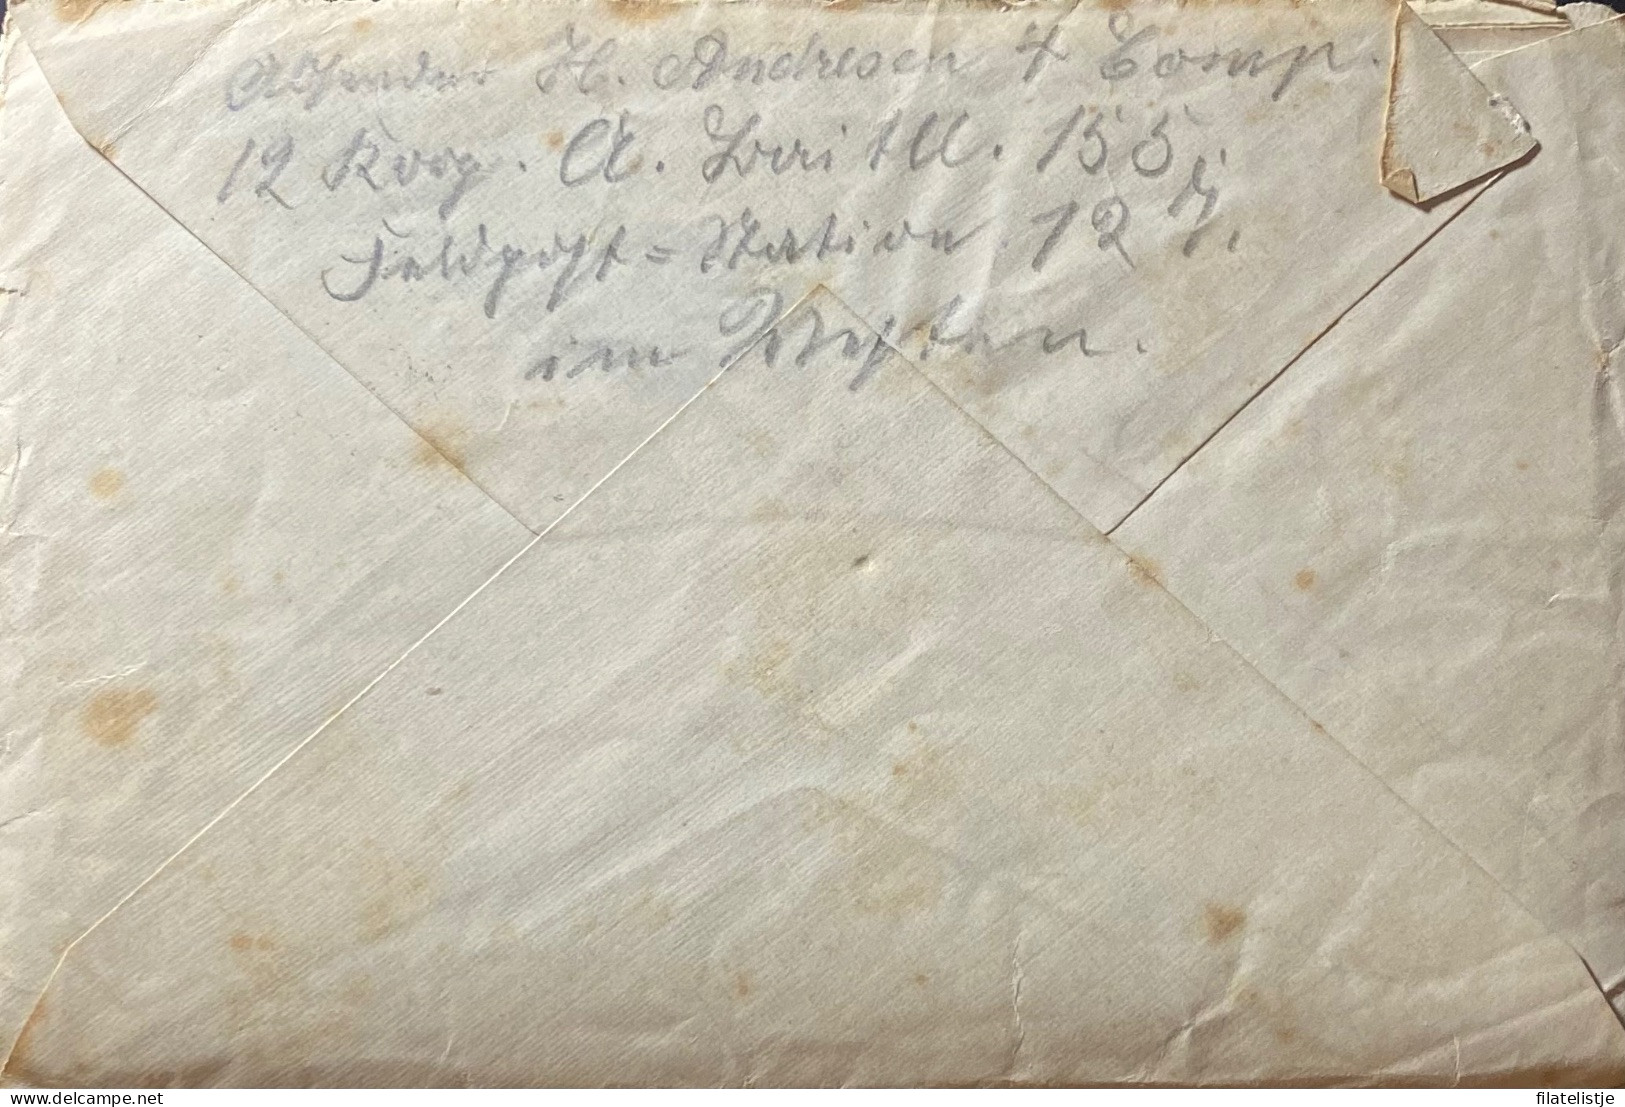 Absender H. Andresen 4 Comp.
12 Korp. A. Batill. 155
Feldpost=Station 12 j.
im Westen.
filatelistje
delcampe.net